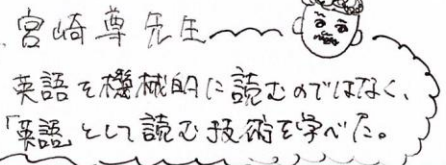 宮崎尊先生
英語を機械的に読むのではなく、
「英語」として読む技術を学べた。